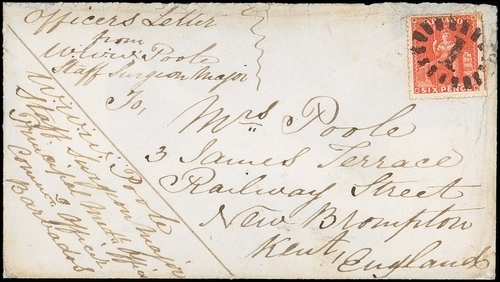 Officers Letter
from
Poole
Staff Surgeon Major
To,
Mrs Poole
3 James Terrace
Railway Street
New Brompton
Kent,
England
Poole
Staff Surgeon Major
Principal Med Officer
Officer
Barbados
BARBADOS
SIX PENCE
1